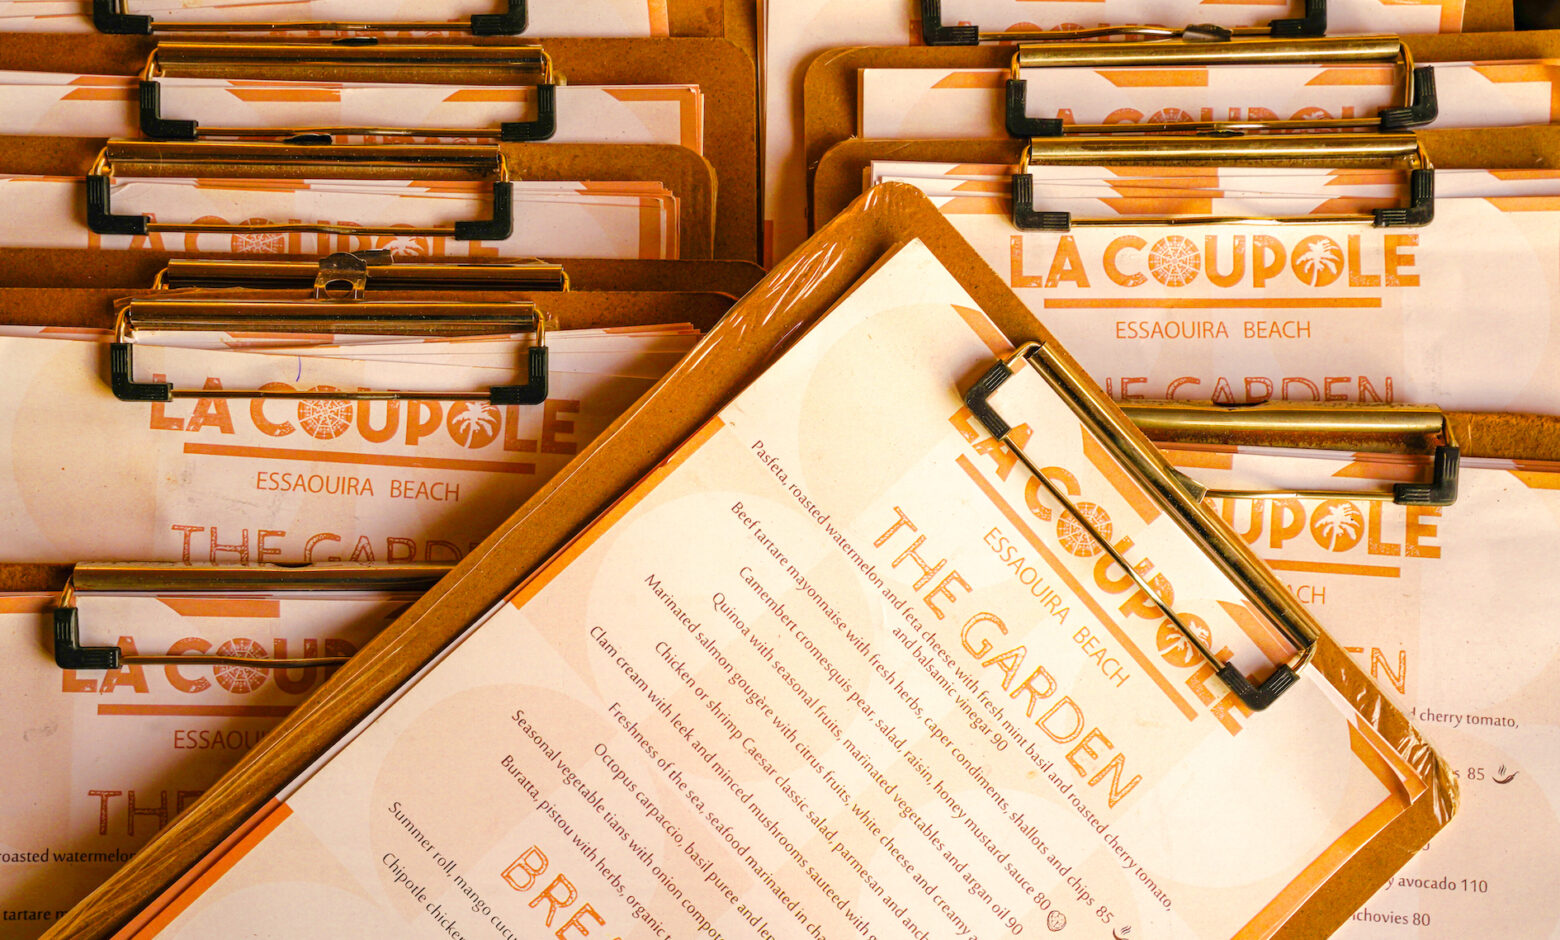 LA COUPOLE
ESSAOUIRA BEACH
THE GARDEN
Pasfeta, roasted watermelon and feta cheese with fresh mint basil and roasted cherry tomato,
and balsamic vinegar 90
Beef tartare mayonnaise with fresh herbs, caper condiments, shallots and chips 85
Camembert cromesquis pear, salad, raisin, honey mustard sauce 80
Quinoa with seasonal fruits, marinated vegetables and argan oil 90
Marinated salmon gougère with citrus fruits, white cheese and creamy a
Chicken or shrimp Caesar classic salad, parmesan and anch
Clam cream with leek and minced mushrooms sauteed with g
Freshness of the sea, seafood marinated in
Octopus carpaccio, basil puree and
Seasonal vegetable tians with onion
Buratta, pistou with herbs, organic
BRE
Summer roll, mango
Chipotle chicken
LA COUPOLE
ESSAOUIRA BEACH
THE GARDEN
LA COUPOLE
ESSAOUIRA BEACH
THE GARDE
LA COUPOLE
LA COUPOLE
LA COU
ESSAOUI
THE
roasted watermelon
tartare
OUPOLE
ACH
EN
cherry tomato,
85
avocado 110
chovies 80